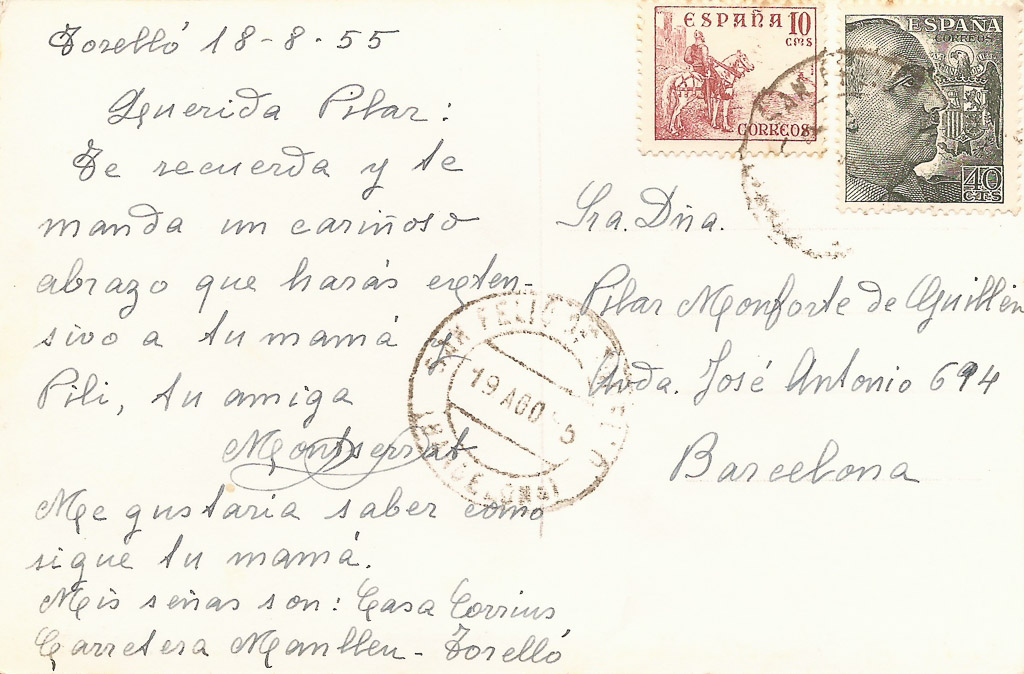 Torelló 18-8-55
Querida Pilar:
Te recuerda y te
manda un cariñoso
abrazo que harás exten-
sivo a tu mamá y
Pili, tu amiga
Montserrat
Me gustaria saber como
sigue tu mamá.
Mis señas son: Casa Corrius
Carretera Manlleu - Torelló
ESPAÑA 10
cms
CORREOS
ESPAÑA
CORREOS
40
CTS
Sra. Dña.
Pilar Monforte de Guillén
Avda. José Antonio 694
Barcelona
SAN FELIO DE
19 AGO 5